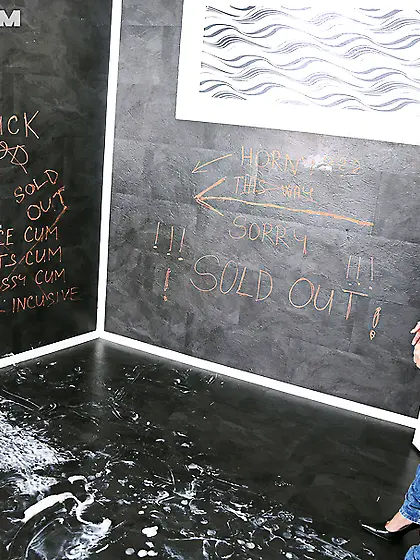 M
ICK
SOLD
OUT
CE CUM
TS CUM
SSY CUM
L INCUSIVE
THIS WAY
SORRY
!!! SOLD OUT !!!
! !